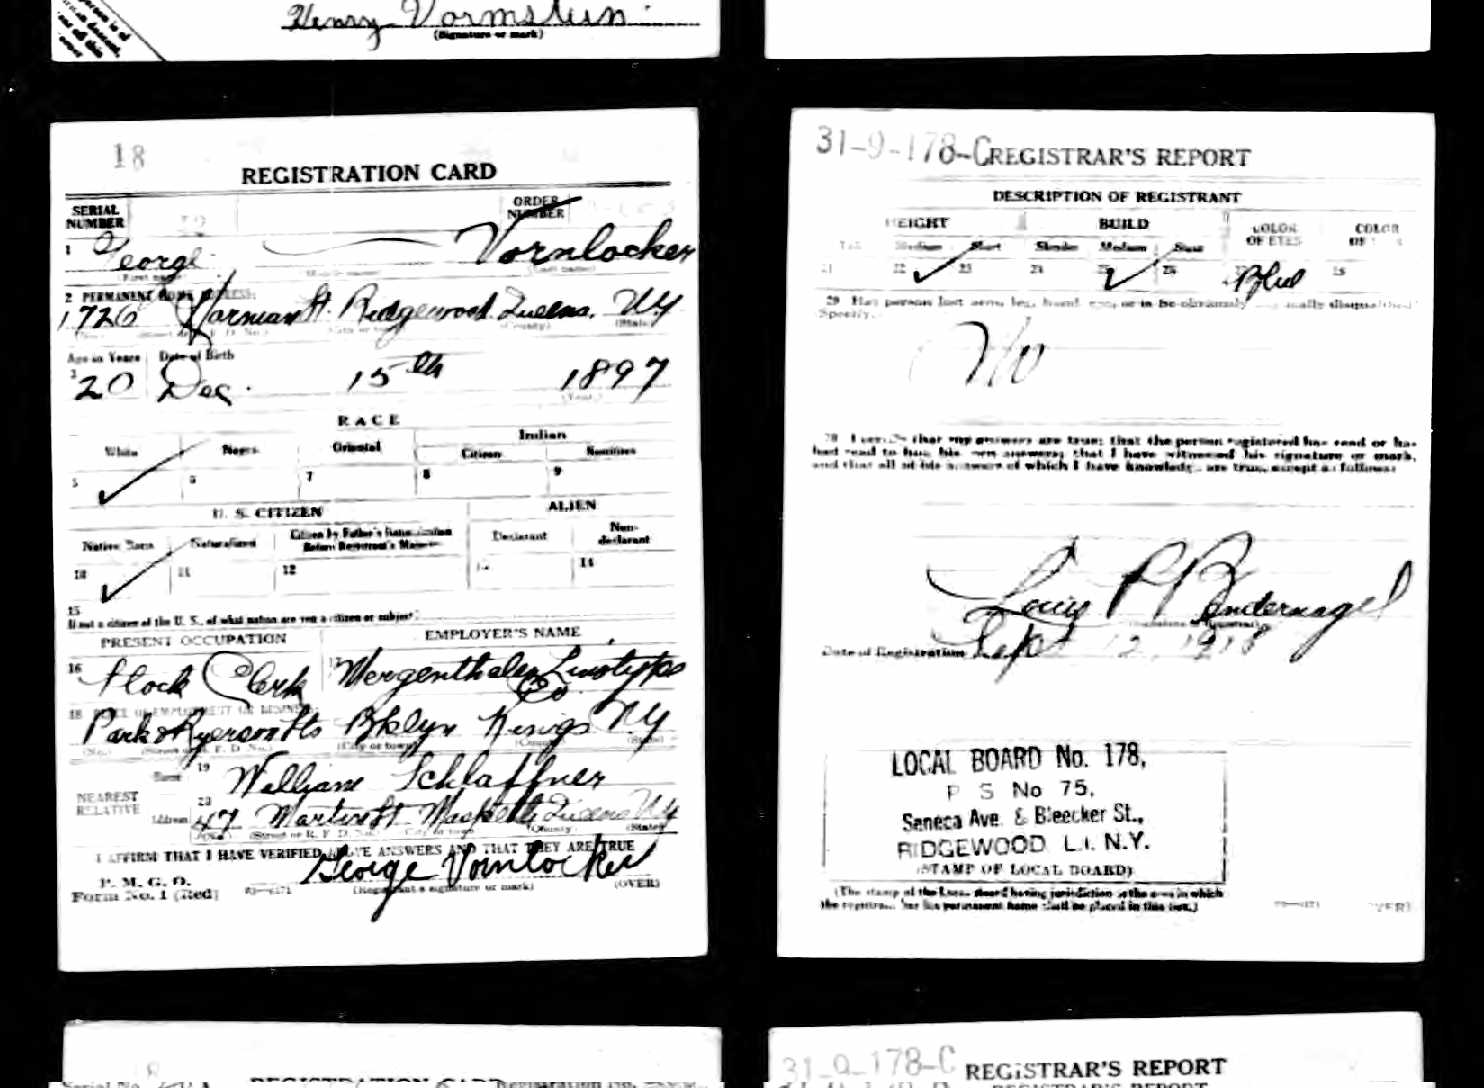 Henry Vormstein
(Signature or mark)
18
REGISTRATION CARD
SERIAL NUMBER
ORDER NUMBER
1 George Vornlocker
(First name) (Middle name) (Last name)
2 PERMANENT HOME ADDRESS:
1726 Harman St. Ridgewood Queens. NY
(County) (State)
Age in Years Date of Birth
3 20 Dec. 15th 1897
(Year)
RACE
White Negro Oriental Indian
Citizen
5 6 7 8 9
U. S. CITIZEN ALIEN
Native Born Naturalized Citizen by Father's Naturalization Before Registrant's Majority Declarant Non-declarant
10 11 12 14
15
If not a citizen of the U. S., of what nation are you a citizen or subject?
PRESENT OCCUPATION EMPLOYER'S NAME
16 Stock Clerk 17 Mergenthaler Linotype Co.
18 PLACE OF EMPLOYMENT OR BUSINESS:
Park & Ryerson Sts Bklyn Kings NY
(No.) (Street or R. F. D. No.) (City or town) (County) (State)
NEAREST RELATIVE
Name 19 William Schlaffner
Address 20 47 Martin St. Maspeth Queens NY
(No.) (Street or R. F. D. No.) (City or town) (County) (State)
I AFFIRM THAT I HAVE VERIFIED ABOVE ANSWERS AND THAT THEY ARE TRUE
P. M. G. O.
Form No. 1 (Red)
George Vornlocker
(Registrant's signature or mark) (OVER)
31-9-178-C REGISTRAR'S REPORT
DESCRIPTION OF REGISTRANT
HEIGHT BUILD COLOR OF EYES COLOR OF
Tall Medium Short Slender Medium Stout
21 22 23 24 25 26 27 Blue 28
29 Has person lost arm, leg, hand, eye, or is he obviously physically disqualified?
Specify.
No
30 I certify that my answers are true; that the person registered has read or has
had read to him his own answers; that I have witnessed his signature or mark,
and that all of his answers of which I have knowledge are true, except as follows:
Louis P Bendernagel
Date of Registration Sept 12, 1918
LOCAL BOARD No. 178,
P S No 75,
Seneca Ave. & Bleecker St.,
RIDGEWOOD L.I. N.Y.
(STAMP OF LOCAL BOARD)
(The stamp of the Local Board having jurisdiction of the area in which
the registrant has his permanent home shall be placed in this box.)
(OVER)
31-9-178-C REGISTRAR'S REPORT